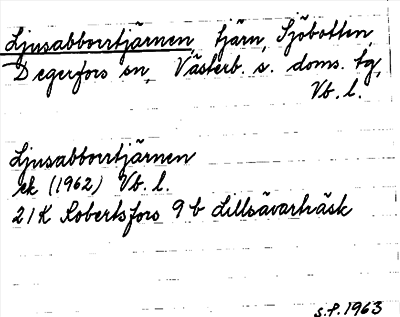 Ljusabborrtjärnen, tjärn, Sjöbotten
Degerfors sn, Västerb. s. doms. tg,
Vb. l.
Ljusabborrtjärnen
ek (1962) Vb. l.
21K Robertsfors 9b Lillsävarträsk
s.f. 1963